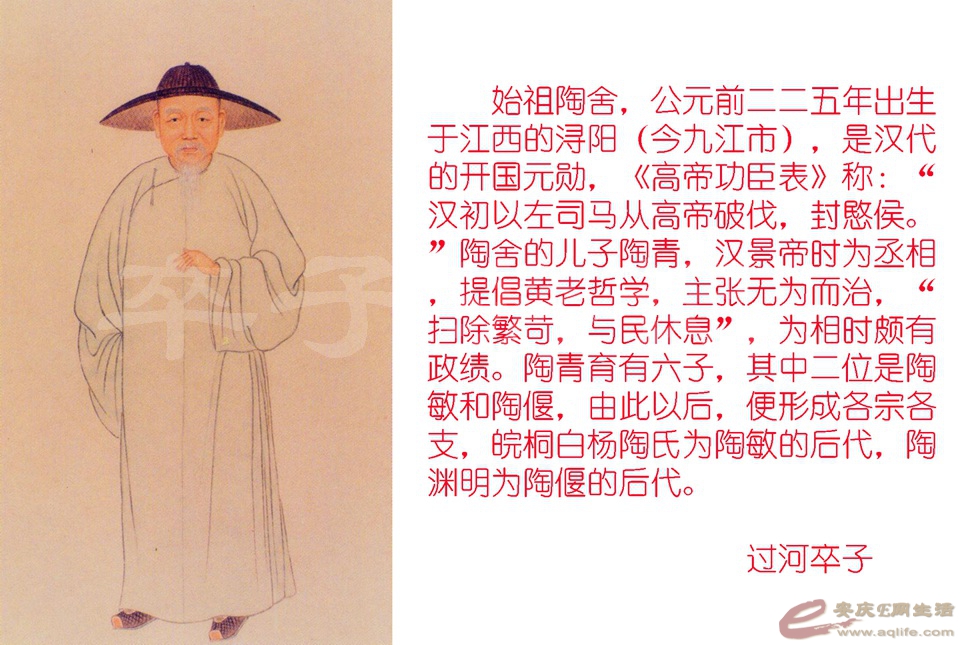 始祖陶舍，公元前二二五年出生
于江西的浔阳（今九江市），是汉代
的开国元勋，《高帝功臣表》称：“
汉初以左司马从高帝破伐，封愍侯。
”陶舍的儿子陶青，汉景帝时为丞相
，提倡黄老哲学，主张无为而治，“
扫除繁苛，与民休息”，为相时颇有
政绩。陶青育有六子，其中二位是陶
敏和陶偃，由此以后，便形成各宗各
支，皖桐白杨陶氏为陶敏的后代，陶
渊明为陶偃的后代。
过河卒子
卒子
e安庆E周生活
www.aqlife.com